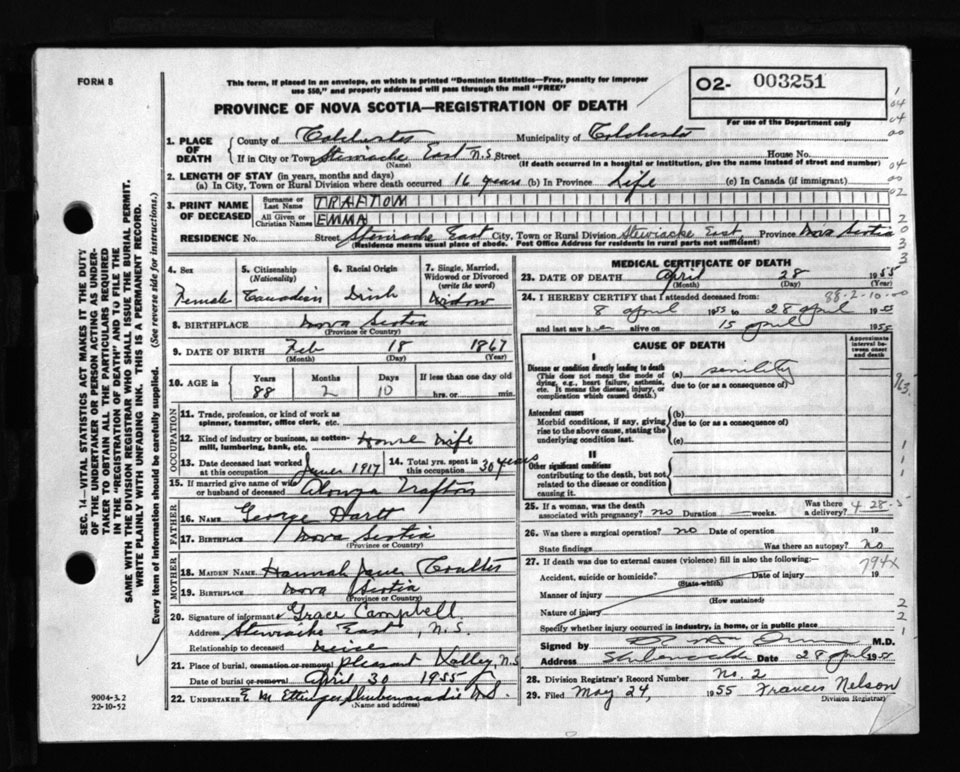 FORM 8
This form, if placed in an envelope, on which is printed "Dominion Statistics—Free, penalty for improper
use $50," and properly addressed will pass through the mail "FREE"
PROVINCE OF NOVA SCOTIA—REGISTRATION OF DEATH
02- 003251
For use of the Department only
1. PLACE OF DEATH
County of Colchester Municipality of Colchester
If in City or Town Stewiacke East N.S Street House No.
(Name) (If death occurred in a hospital or institution, give the name instead of street and number)
2. LENGTH OF STAY (in years, months and days)
(a) In City, Town or Rural Division where death occurred 16 years (b) In Province Life (c) In Canada (if immigrant)
3. PRINT NAME OF DECEASED
Surname or Last Name TRAFTON
All Given or Christian Names EMMA
RESIDENCE No. Street Stewiacke East City, Town or Rural Division Stewiacke East, Province Nova Scotia
(Residence means usual place of abode. Post Office Address for residents in rural parts not sufficient)
4. Sex
Female
5. Citizenship
(Nationality)
Canadian
6. Racial Origin
7. Single, Married,
Widowed or Divorced
(write the word)
Widow
8. BIRTHPLACE Nova Scotia
(Province or Country)
9. DATE OF BIRTH Feb 18 1867
(Month) (Day) (Year)
10. AGE in
Years Months Days If less than one day old
88 2 10 hrs. or min.
OCCUPATION
11. Trade, profession, or kind of work as
spinner, teamster, office clerk, etc.
12. Kind of industry or business, as cotton-
mill, lumbering, bank, etc. House Wife
13. Date deceased last worked
at this occupation 1917
14. Total yrs. spent in
this occupation 30 years
15. If married give name of wife
or husband of deceased Alonza Trafton
FATHER
16. NAME George Hartt
17. BIRTHPLACE Nova Scotia
(Province or Country)
MOTHER
18. MAIDEN NAME Hannah Jane Coulter
19. BIRTHPLACE Nova Scotia
(Province or Country)
20. Signature of informant Grace Campbell
Address Stewiacke East, N.S.
Relationship to deceased neice
21. Place of burial, cremation or removal Pleasant Valley, N.S
Date of burial or removal April 30 1955
22. UNDERTAKER E M Ettinger Shubenacadie N.S.
(Name and address)
MEDICAL CERTIFICATE OF DEATH
23. DATE OF DEATH April 28 1955
(Month) (Day) (Year)
88-2-10-00
24. I HEREBY CERTIFY that I attended deceased from:
8 april 1955 to 28 april 1955
and last saw h er alive on 15 april 1955
CAUSE OF DEATH
Approximate
interval be-
tween onset
and death
I
Disease or condition directly leading to death
(This does not mean the mode of
dying, e.g., heart failure, asthenia,
etc. It means the disease, injury, or
complication which caused death.)
(a) senility
due to (or as a consequence of)
Antecedent causes
Morbid conditions, if any, giving
rise to the above cause, stating the
underlying condition last.
(b)
due to (or as a consequence of)
(c)
II
Other significant conditions
contributing to the death, but not
related to the disease or condition
causing it.
25. If a woman, was the death
associated with pregnancy? no Duration weeks. Was there
a delivery?
26. Was there a surgical operation? no Date of operation 19
State findings Was there an autopsy? no
27. If death was due to external causes (violence) fill in also the following:
794x
Accident, suicide or homicide? Date of injury 19
(State which)
Manner of injury
(How sustained)
Nature of injury
Specify whether injury occurred in industry, in home, or in public place
Signed by M.D.
Address Shubenacadie Date 28 april 1955
28. Division Registrar's Record Number No. 2
29. Filed May 24, 1955 Francis Nelson
Division Registrar
SEC. 14—VITAL STATISTICS ACT MAKES IT THE DUTY
OF THE UNDERTAKER OR PERSON ACTING AS UNDER-
TAKER TO OBTAIN ALL THE PARTICULARS REQUIRED
IN THE "REGISTRATION OF DEATH" AND TO FILE THE
SAME WITH THE DIVISION REGISTRAR WHO SHALL ISSUE THE BURIAL PERMIT.
WRITE PLAINLY WITH UNFADING INK. THIS IS A PERMANENT RECORD.
Every item of information should be carefully supplied. (See reverse side for instructions.)
9004-3.2
22-10-52